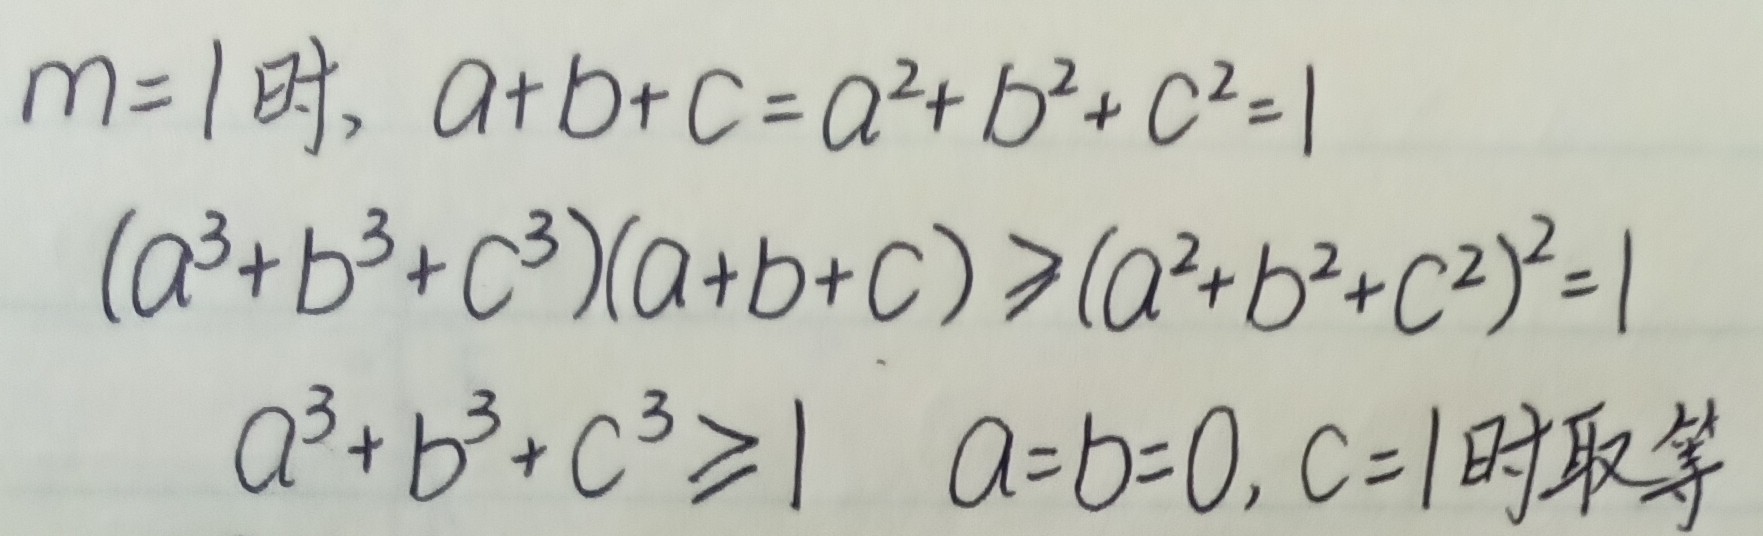 m=1时, a+b+c=a²+b²+c²=1
(a³+b³+c³)(a+b+c)≥(a²+b²+c²)²=1
a³+b³+c³≥1 a=b=0, c=1时取等